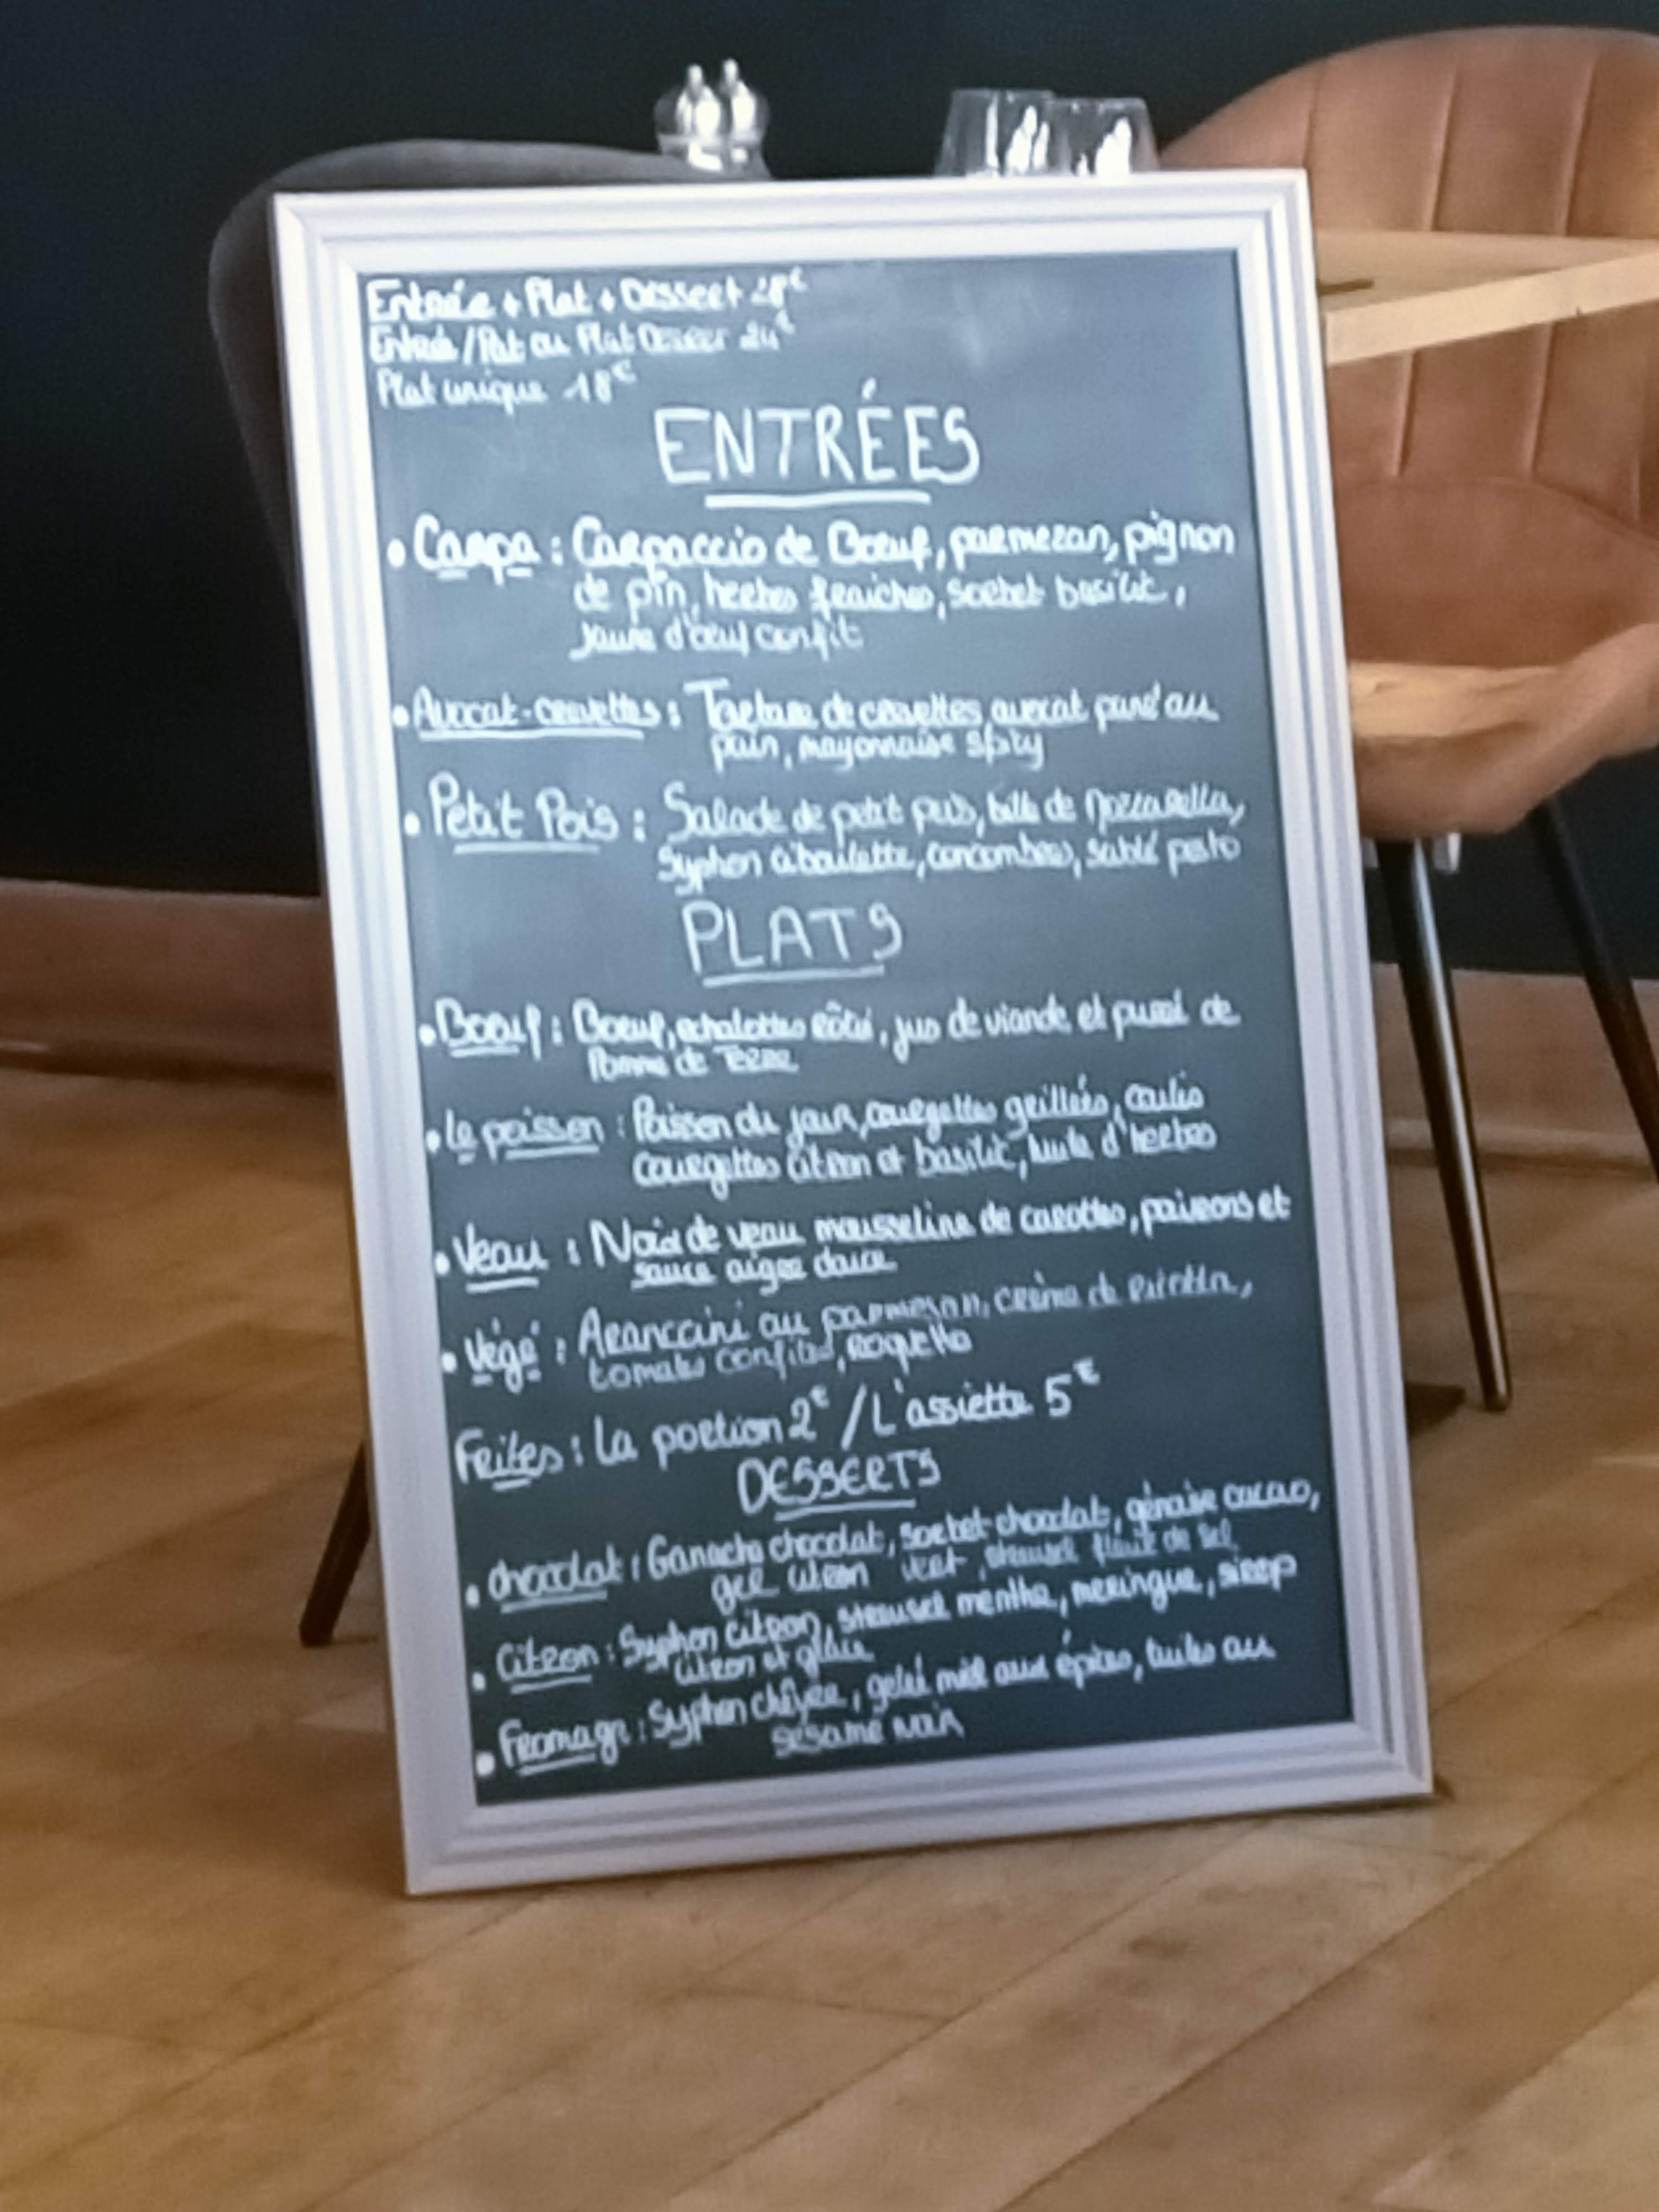 Entrée + Plat + Dessert 28€
Entrée/Plat ou Plat Dessert 24€
Plat unique 18€
ENTRÉES
• Carpa : Carpaccio de Boeuf, parmezan, pignon
de pin, herbes fraiches, sorbet basilic,
jaune d'œuf confit
• Avocat-crevettes : Tartare de crevettes, avocat pané au
pain, mayonnaise spicy
• Petit Pois : Salade de petit pois, bille de Mozzarella,
Syphon ciboulette, concombres, sablé pesto
PLATS
• Boeuf : Boeuf, echalottes rôtie, jus de viande et purré de
Pomme de Terre
• Le poisson : Poisson du jour, courgettes grillées, coulis
courgettes citron et basilic, huile d'herbes
• Veau : Noix de veau mousseline de carottes, poivrons et
sauce aigre douce
• Végé : Arancini au parmesan, crème de ricotta,
tomates confites, roquette
Frites : La portion 2€ / L'assiette 5€
DESSERTS
• chocolat : Ganache chocolat, sorbet chocolat, génoise cacao,
gel citron vert, streusel fleur de sel
• Citron : Syphon citron, streusel menthe, meringue, sirop
citron et glace
• Fromage : Syphon chèvre, gelée miel aux épices, tuiles au
sésame noir